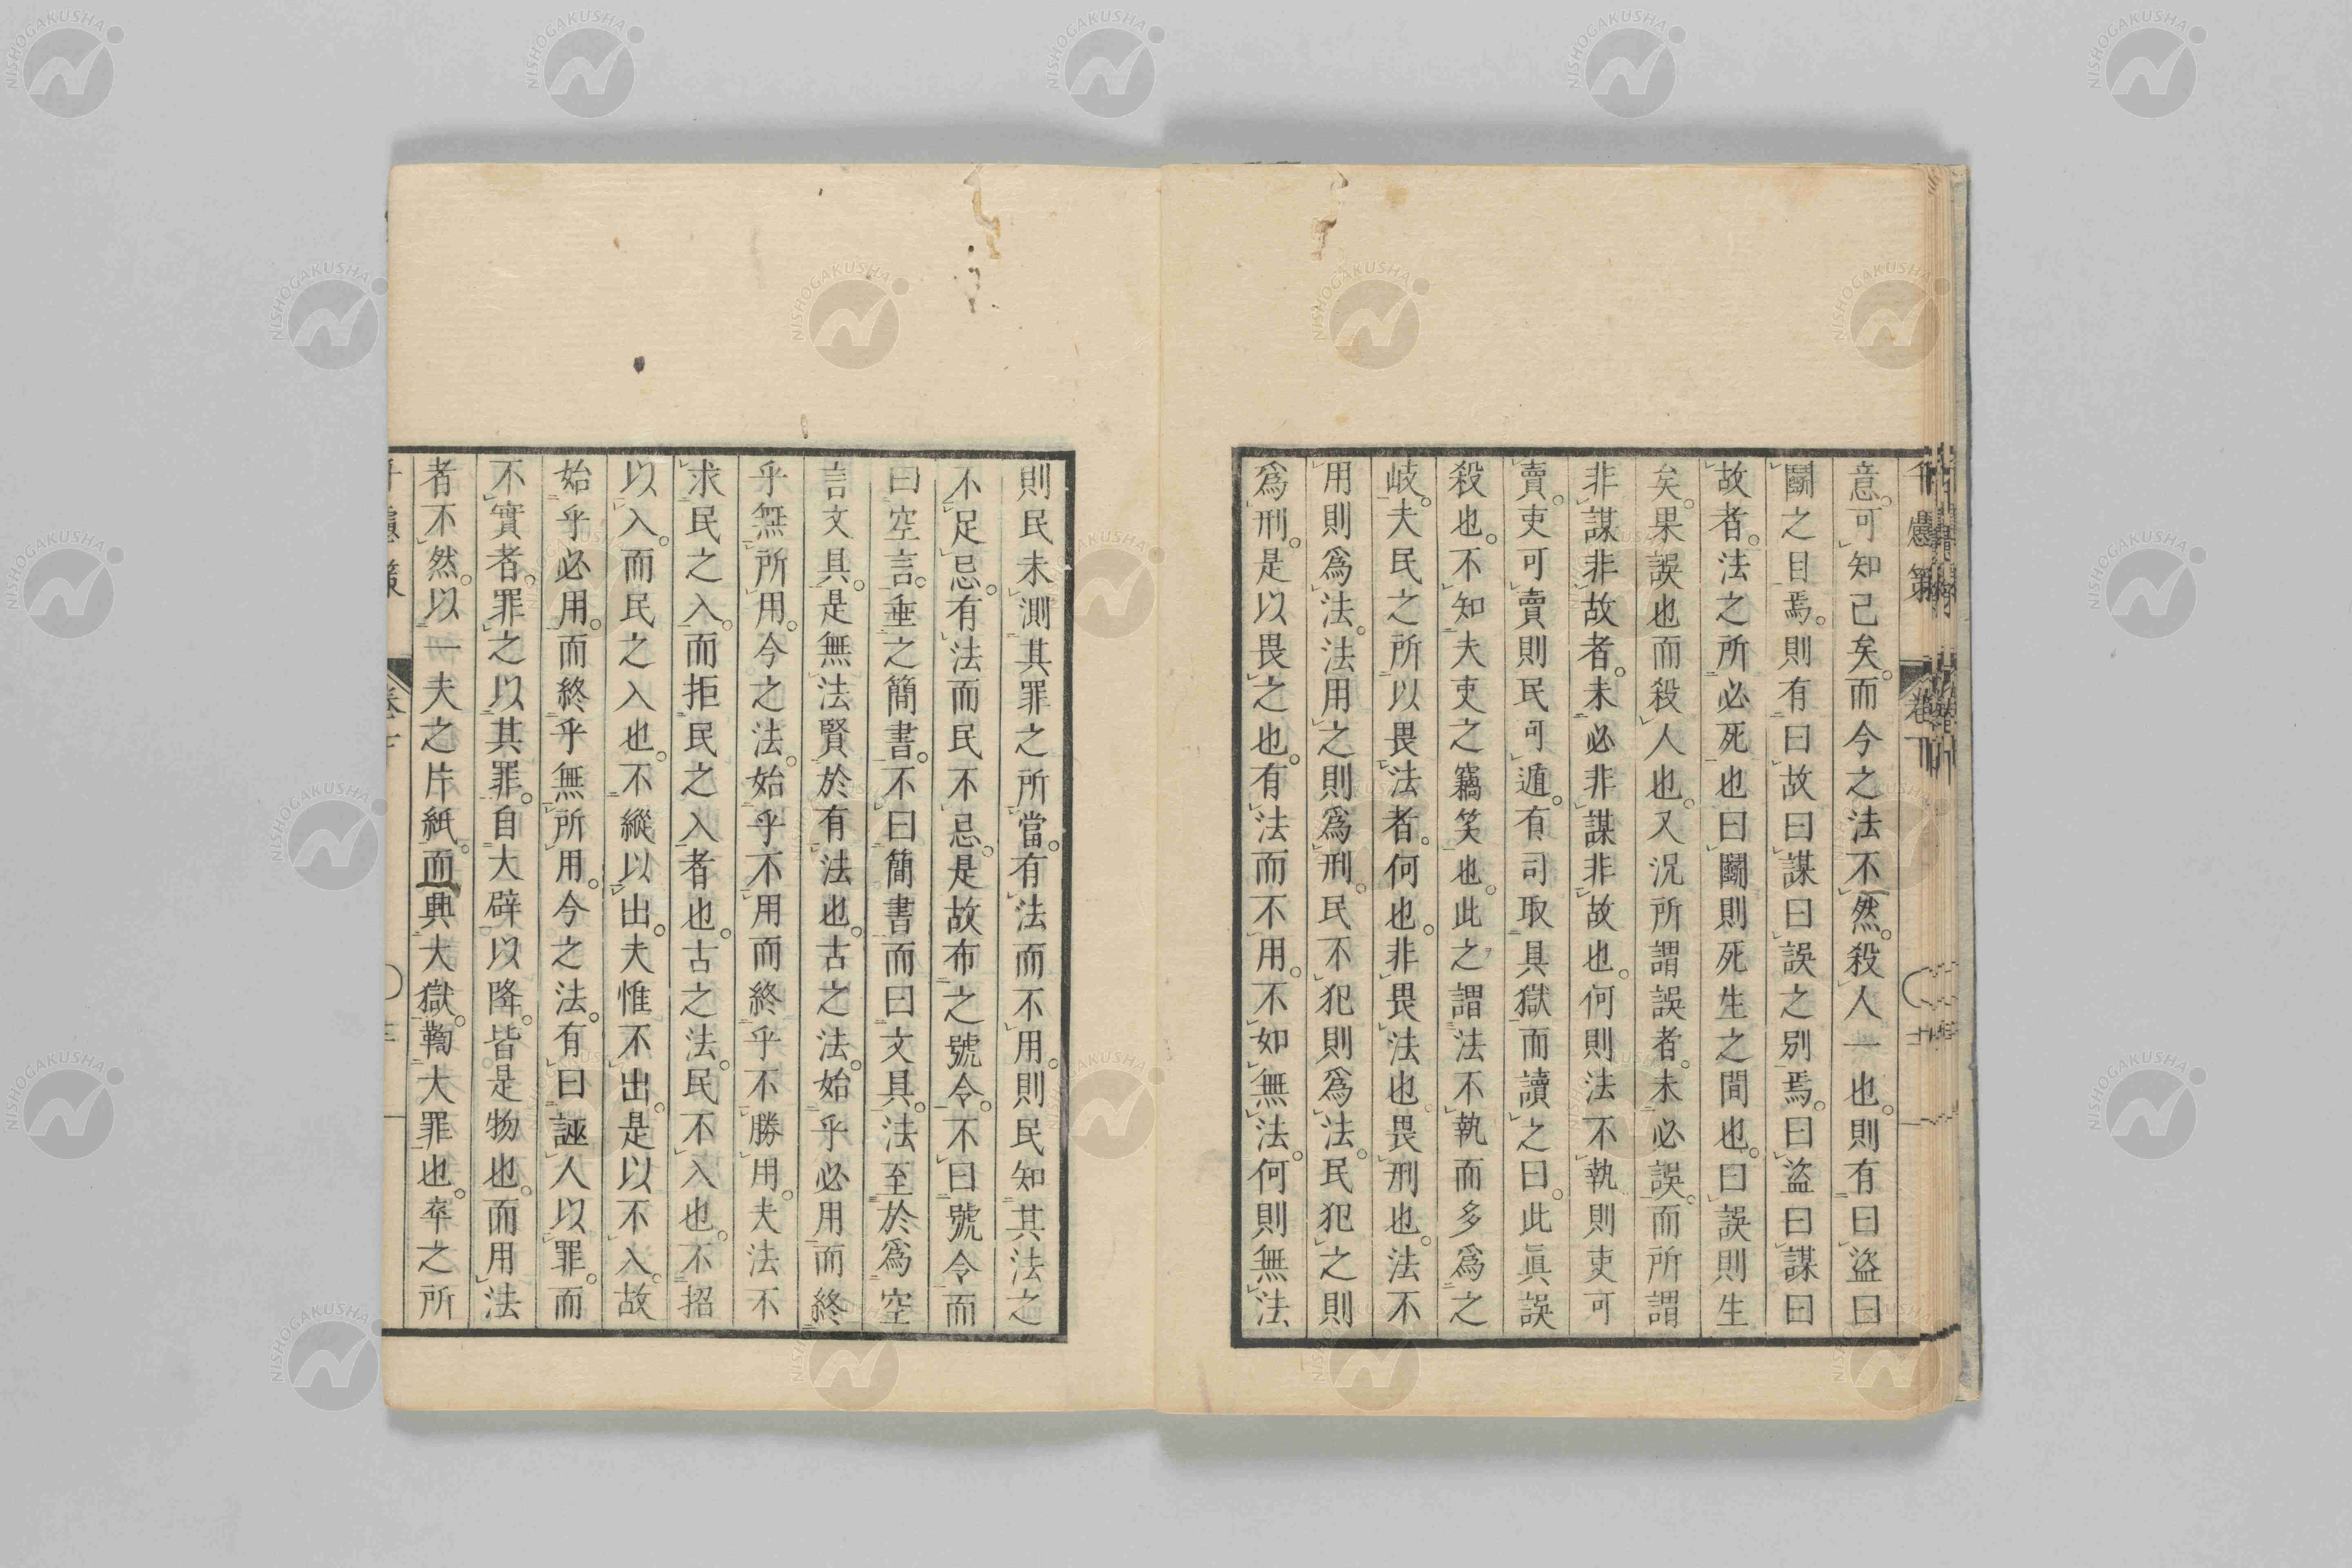 千慮策
意。可知已矣。而今之法不然。殺人一也。則有曰盜曰
鬭之目焉。則有曰故曰謀曰誤之別焉。曰盜曰謀曰
故者。法之所必死也曰鬭則死生之間也。曰誤則生
矣。果誤也而殺人也。又況所謂誤者。未必誤。而所謂
非謀非故者。未必非謀非故也。何則法不執則吏可
賣。吏可賣則民可遁。有司取具獄而讀之曰。此眞誤
殺也。不知夫吏之竊笑也。此之謂法不執而多爲之
岐。夫民之所以畏法者。何也。非畏法也畏刑也。法不
用則爲法。法用之則爲刑。民不犯則爲法。民犯之則
爲刑。是以畏之也。有法而不用。不如無法。何則無法
則民未測其罪之所當。有法而不用。則民知其法之
不足忌。有法而民不忌。是故布之號令。不曰號令而
曰空言。垂之簡書。不曰簡書而曰文具。法至於爲空
言文具。是無法賢於有法也。古之法。始乎必用而終
乎無所用。今之法。始乎不用而終乎不勝用。夫法不
求民之入。而拒民之入者也。古之法。民不入也。不招
以入。而民之入也。不縱以出。夫惟不出。是以不入。故
始乎必用。而終乎無所用。今之法。有曰誣人以罪。而
不實者。罪之以其罪。自大辟以降。皆是物也。而用法
者不然。以一夫之片紙。而興大獄。鞫大罪也。卒之所